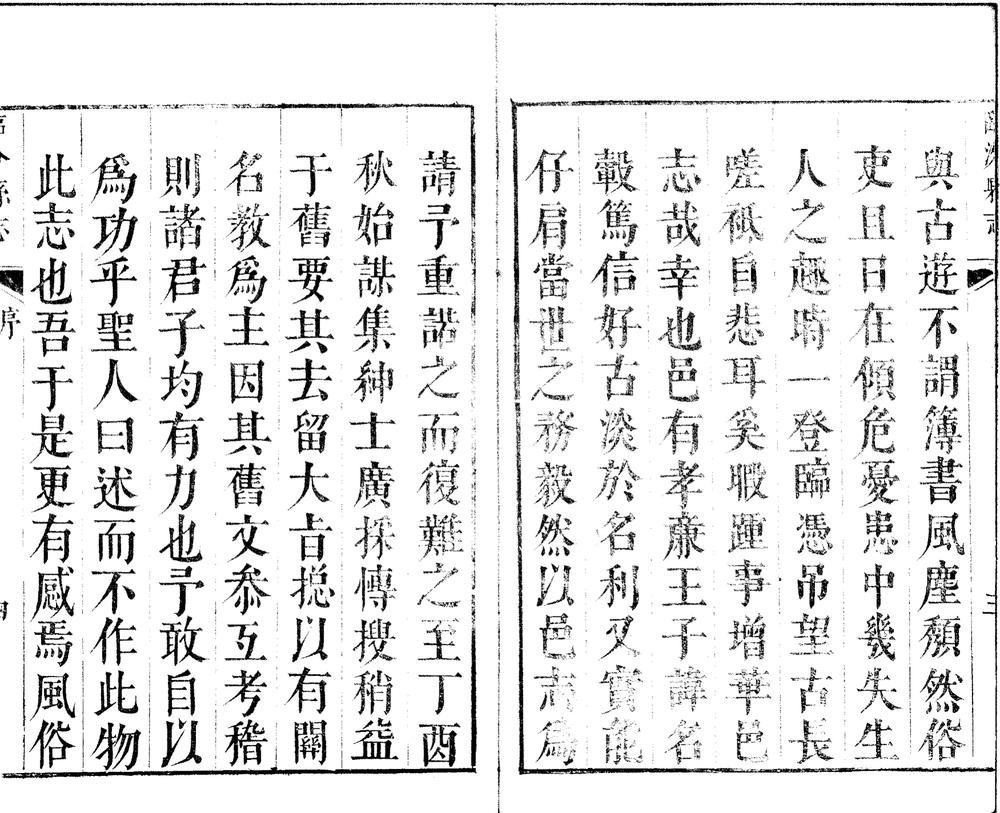 與古遊不謂簿書風塵頹然俗
吏且日在傾危憂患中幾失生
人之趣時一登臨憑吊望古長
嗟祇自悲耳奚暇踵事增華邑
志哉幸也邑有孝亷王子諱名
轂篤信好古淡於名利又實能
仔肩當世之務毅然以邑志為
三
請予重諾之而復難之至丁酉
秋始謀集紳士廣採愽搜稍益
于舊要其去留大㫖揔以有關
名教爲主因其舊文叅互考稽
則諸君子均有力也予敢自以
爲功乎聖人曰述而不作此物
此志也吾于是更有感焉風俗
縣志
序
四